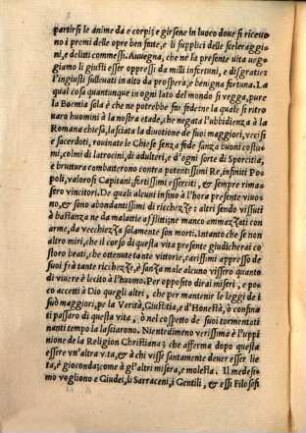 partirsi le anime da e corpi; e girsene in luoco doue si riceuo
no i premi delle opre ben fatte, e li supplici delle sceleraggi
ni, e delitti commessi. Auuegna, che ne la presente uita ueg
giamo li giusti esser oppressi da mille infortuni, e disgratie;
l'ingiusti solleuati in alto da prospera, e benigna fortuna. La
qual cosa quantunque in ogni lato del mondo si uegga, pure
la Boemia sola è che ne potrebbe far fede: ne la quale si ritro
uaro huomini à la nostra etade, che negata l'ubbidienza à la
Romana chiesa, lasciata la diuotione de suoi maggiori, uccisi
e sacerdoti, rouinate le Chiese senza fede senza buoni costu
mi, colmi di latrocini, di adulteri, e d'ogni sorte di Sporcitia,
e bruttura combatterono contra potentissimi Re, infiniti Po
poli, ualorosi Capitani, fierissimi esserciti, & sempre rima
sero uincitori. De quali alcuni infino à l'hora presente uiuo
no, & sono abondantissimi di ricchezze: altri sendo uissuti
à bastanza ne da malatie afflitti; ne manco ammazzati con
arme, da uecchiezza solamente son morti. Intanto che se non
altro miri, che il corso di questa uita presente giudicherai co
storo beati, che ottenute tante uittorie, carissimi appresso de
suoi frà tante ricchezze, è sanza male alcuno uissero quanto
di uiuere è lecito à l'huomo. Per opposito dirai miseri, e po
co accetti à Dio quegli altri, che per mantenere le leggi de i
suo maggiori, pe la Verità, Giustitia, e d'Honestà, ò confina
ti passaro di questa uita, ò nel cospetto de' suoi tormentati
inanti tempo la lasciarono. Nientedimeno uerissima è l'oppinio
ne de la Religion Christiana; che afferma dopo questa
essere un'altra uita, & à chi uisse santamente deuer esser lie
ta, è gioconda; come à gl'altri misera, e molesta. Il medesi
mo uogliono e Giudei, li Sarraceni, i Gentili, & essi Filosofi